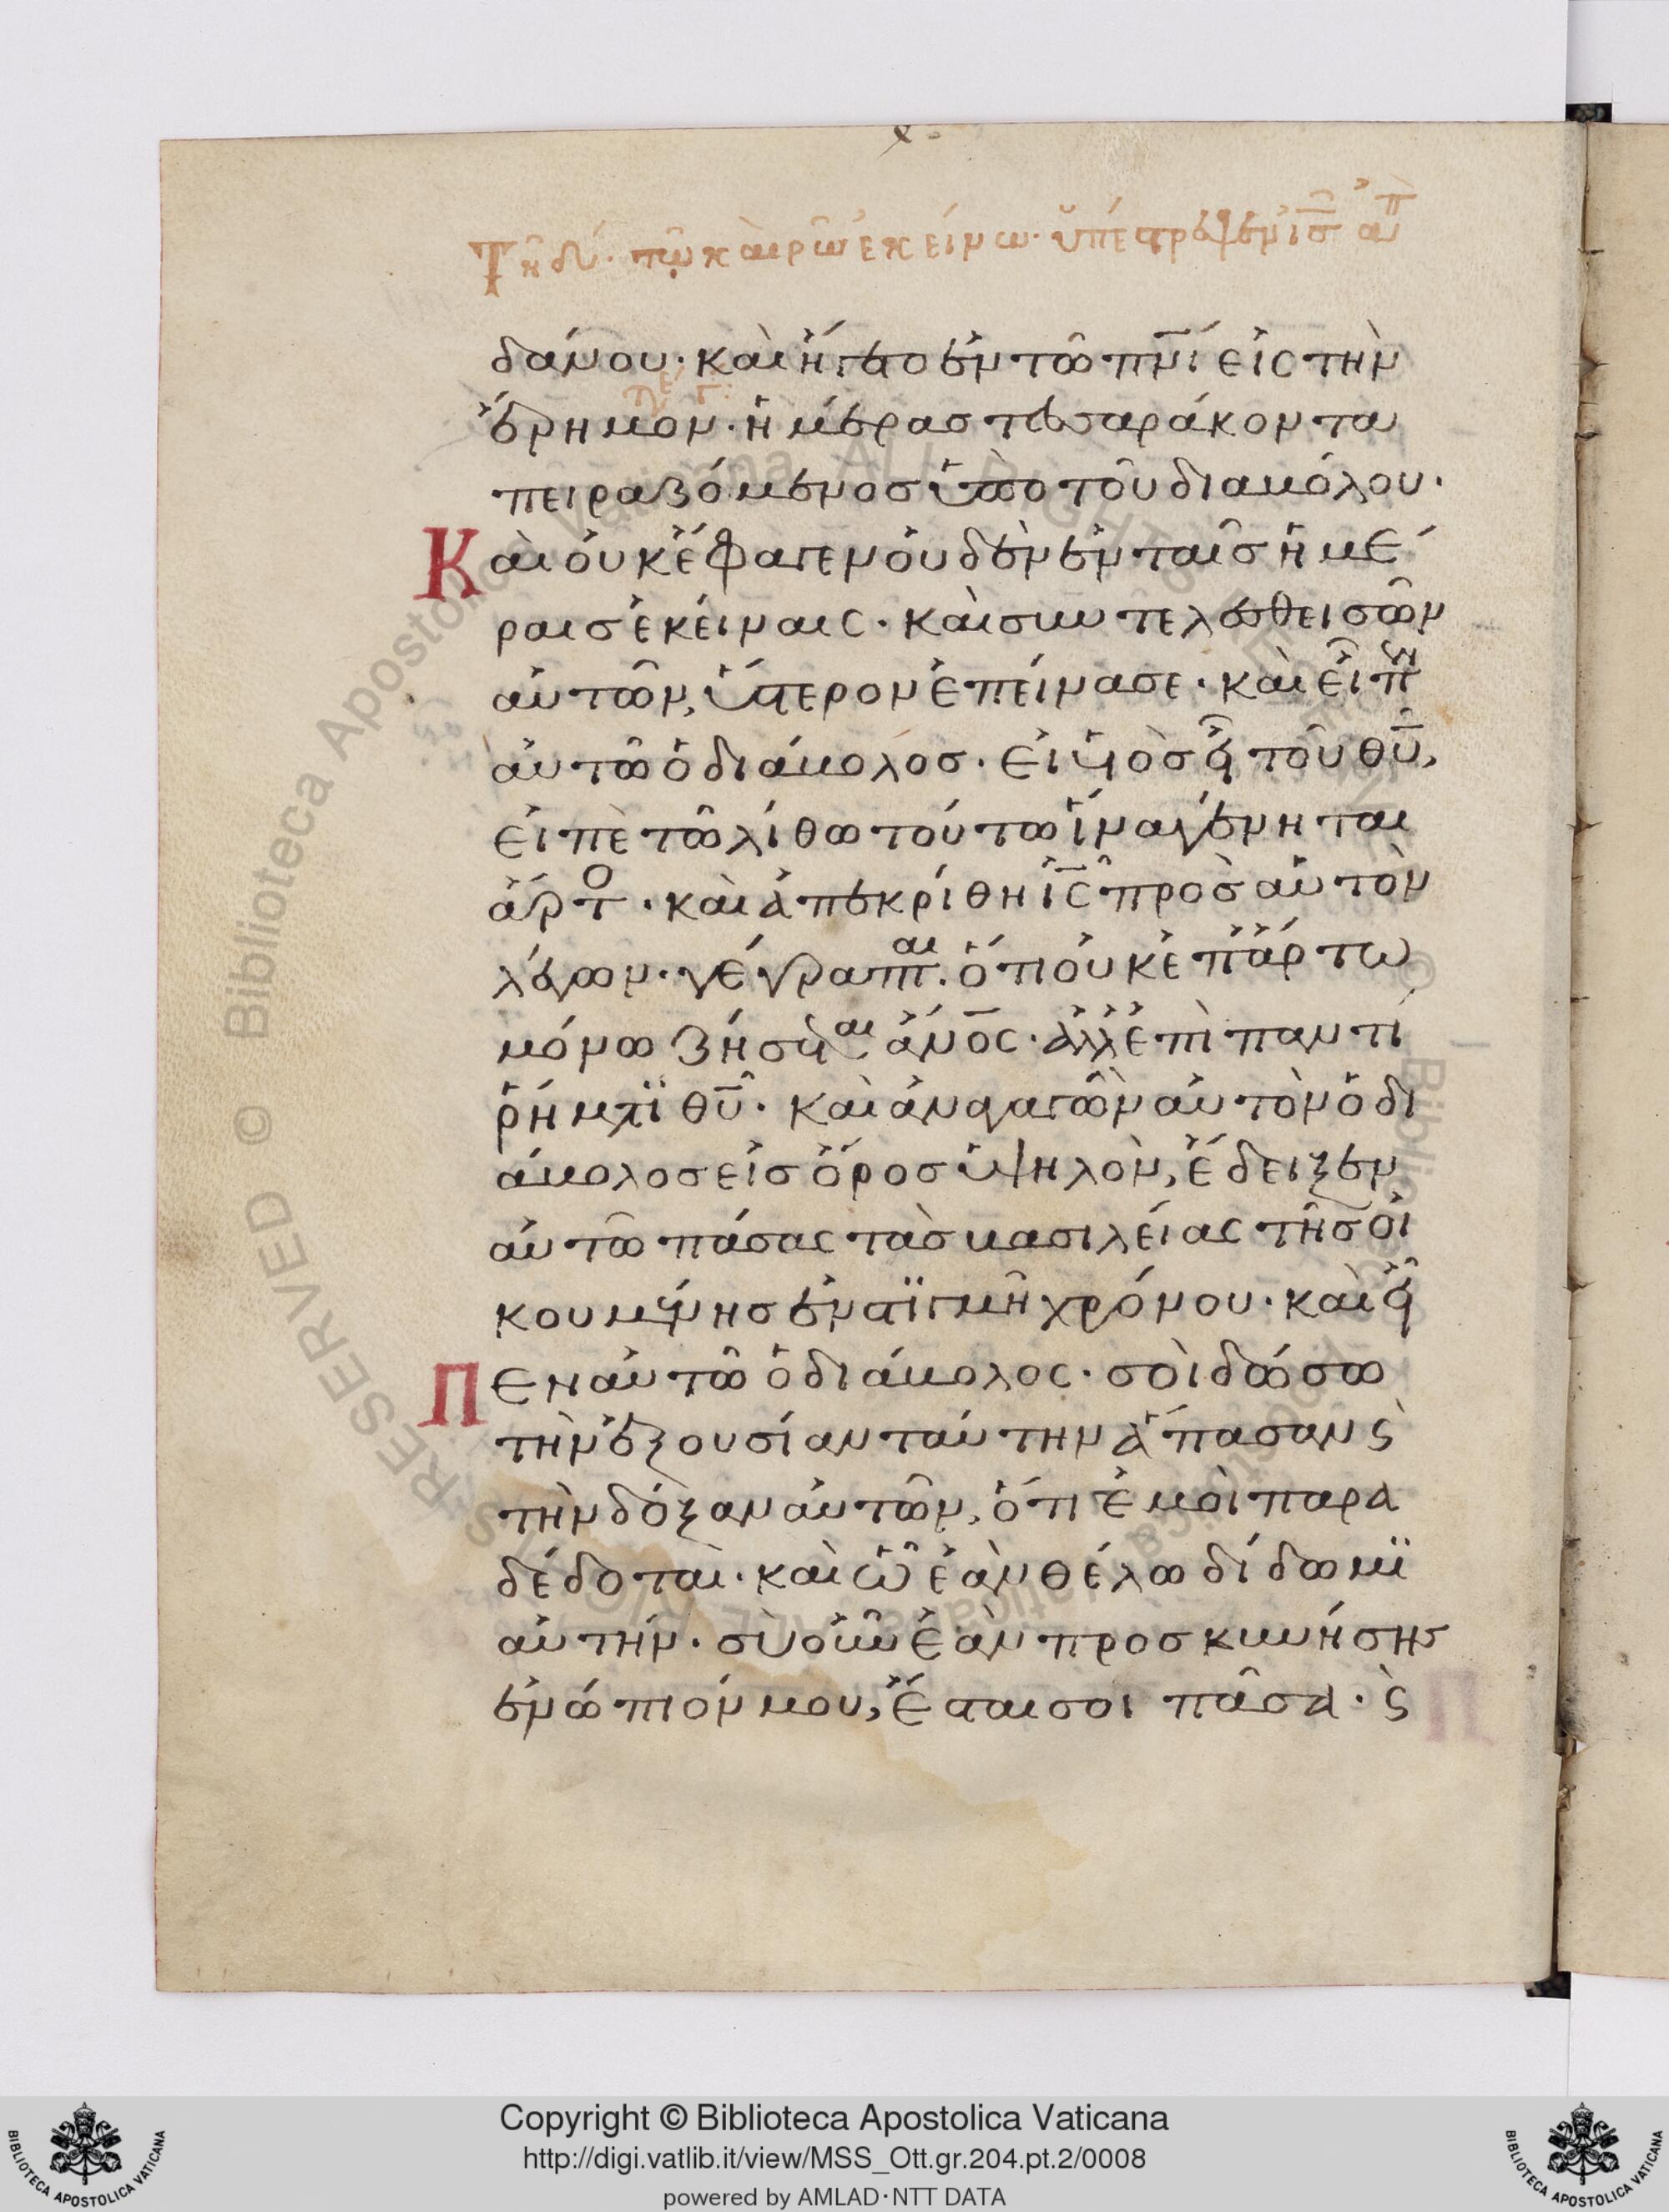 Τῆ δυ. τῶ καιρῶ ἐκείνω. ὑπέστρεψεν ὁ ἰς ἀπ
δάνου· καὶ ἤγετο ἐν τῶ πνι εἰς τὴν
ἔρημον. ἡμέρας τεσσαράκοντα
πειραζόμενος ὑπὸ τοῦ διαβόλου·
Καὶ οὐκ ἔφαγεν οὐδὲν ἐν ταῖς ἡμέ
ραις ἐκείναις. καὶ συντελεσθεισῶν
αὐτῶν, ὕστερον ἐπείνασε. καὶ εἶπεν
αὐτῶ ὁ διάβολος. εἰ υἱὸς εἶ τοῦ θυ,
εἰπὲ τῶ λίθω τούτω ἵνα γένηται
ἄρτο. καὶ ἀπεκρίθη ις πρὸς αὐτὸν
λέγων. γέγραπται. ὅτι οὐκ ἐπ' ἄρτω
μόνω ζήσεται ἄνος. ἀλλ' ἐπὶ παντὶ
ῥήματι θυ. καὶ ἀναγαγὼν αὐτὸν ὁ δι
άβολος εἰς ὄρος ὑψηλὸν, ἔδειξεν
αὐτῶ πάσας τὰς βασιλείας τῆς οἰ
κουμένης ἐν στιγμῆ χρόνου. καὶ εἶ
Πεν αὐτῶ ὁ διάβολος. σοὶ δώσω
τὴν ἐξουσίαν ταύτην ἅπασαν ϛ
τὴν δόξαν αὐτῶν, ὅτι ἐμοὶ παρα
δέδοται. καὶ ὧ ἐὰν θέλω δίδωμι
αὐτήν. σὺ οὖν ἐὰν προσκυνήσης
ἐνώπιόν μου, ἔσται σοι πᾶσα. ϛ
Copyright © Biblioteca Apostolica Vaticana
http://digi.vatlib.it/view/MSS_Ott.gr.204.pt.2/0008
powered by AMLAD·NTT DATA
BIBLIOTECA APOSTOLICA VATICANA
BIBLIOTECA APOSTOLICA VATICANA